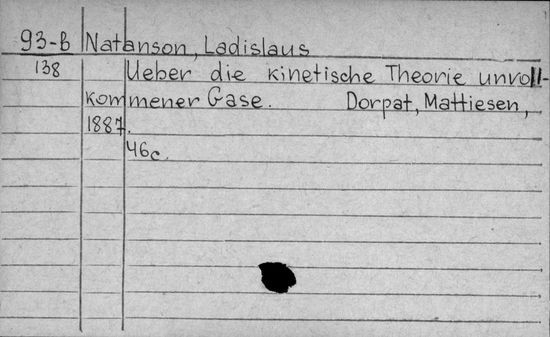 93-B Natanson, Ladislaus
138 Ueber die kinetische Theorie unvoll-
kommener Gase. Dorpat, Mattiesen,
1887.
46c.